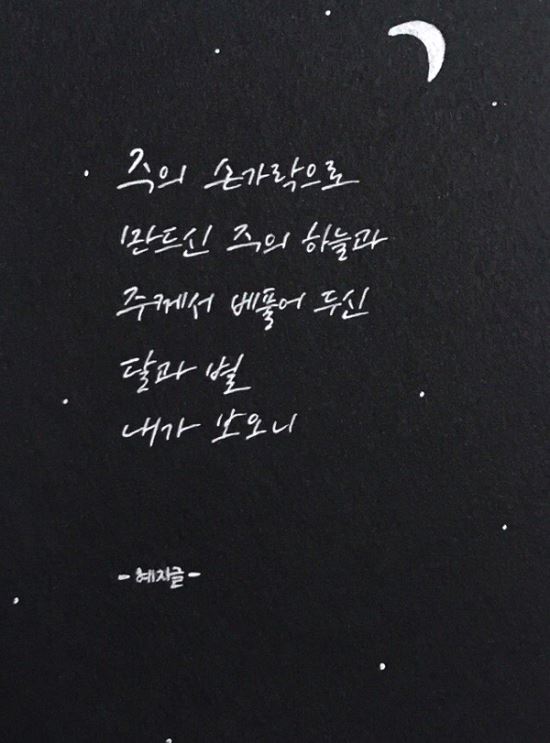 주의 손가락으로
만드신 주의 하늘과
주께서 베풀어 두신
달과 별
내가 보오니
- 혜지글 -